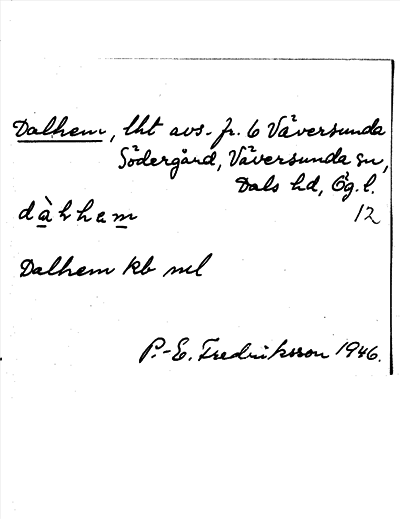 Dalhem, lht avs. fr. 6 Väversunda
Södergård, Väversunda sn,
Dals hd, Ög. l.
dàhham 12
Dalhem kb ml
P.-E. Fredriksson 1946.